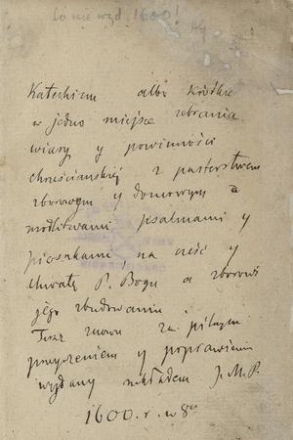 to nie wyd. 1600!
Katechism albo krótkie
w jedno miejsce zebranie
wiary y powinności
chrześcianskiej z pasterstwem
zborowym y domowym z
modlitwami psalmami y
piosnkami, na cześć y
chwałę P. Bogu a zborowi
jego zbudowaniu.
Teraz znowu za pilnym
przejrzeniem y poprawieniem
wydany nakładem J. M. P.
1600. r. w 8ce